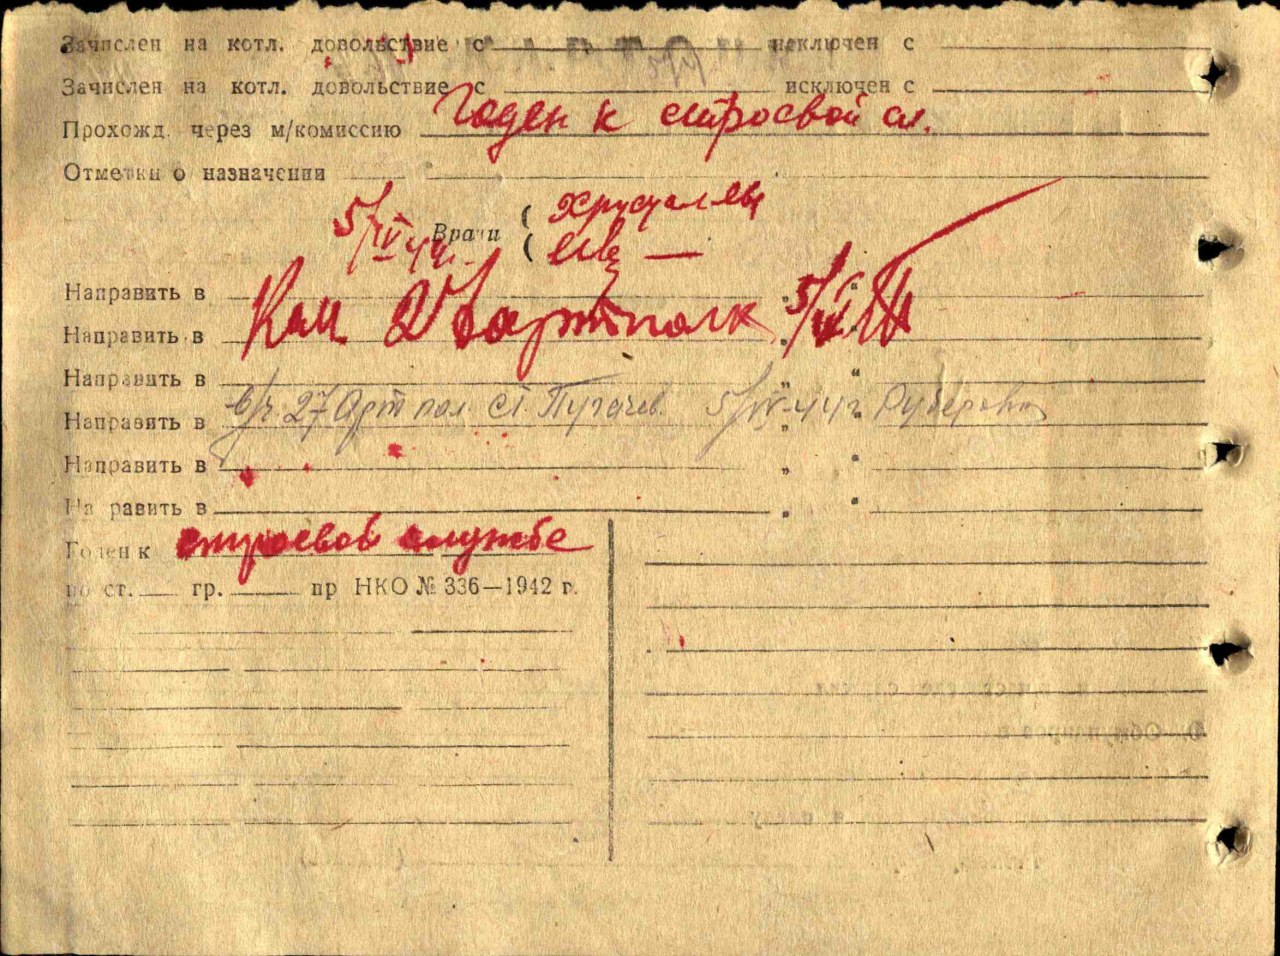 Зачислен на котл. довольствие с исключен с
Зачислен на котл. довольствие с исключен с
Прохожд. через м/комиссию Годен к строевой сл.
Отметки о назначении
5/IV 44г. Врачи ( Хрусталев
(
Направить в
Направить в Кам артполк 5/IV
Направить в
Направить в в/ч 27 Арт пол ст. Пугачев 5/IV-44г
Направить в
На равить в
Годен к строевой службе
по ст. гр. пр НКО № 336—1942 г.